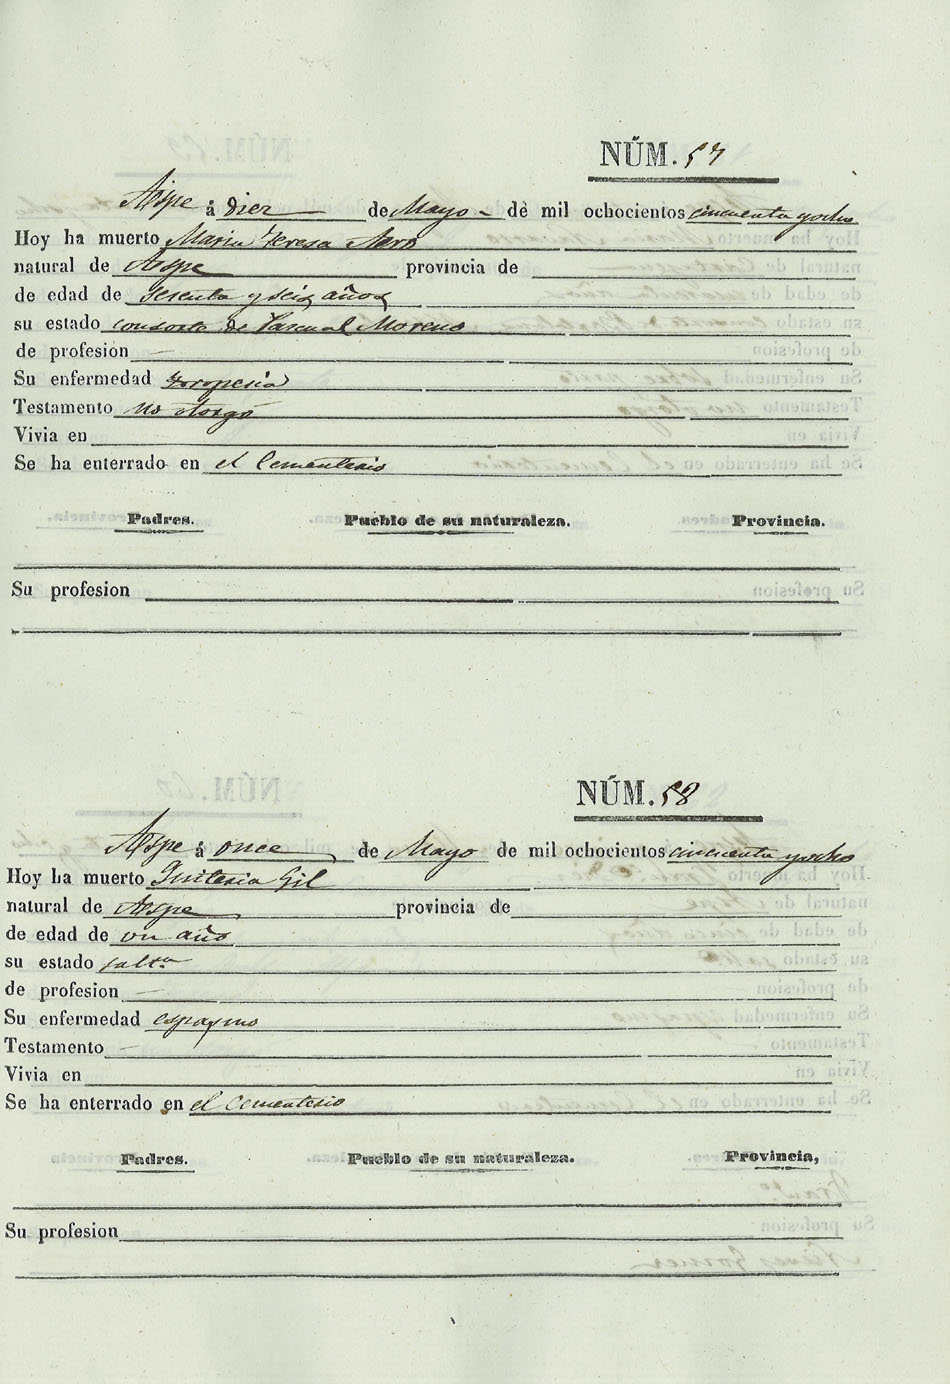 NÚM. 57
Aspe á diez de Mayo de mil ochocientos cincuenta y ocho
Hoy ha muerto Maria Teresa
natural de Aspe provincia de
de edad de sesenta y seis años
su estado consorte de Pascual Moreno
de profesion
Su enfermedad
Testamento no otorgó
Vivia en
Se ha enterrado en el Cementerio
Padres. Pueblo de su naturaleza. Provincia.
Su profesion
NÚM. 58
Aspe á once de Mayo de mil ochocientos cincuenta y ocho
Hoy ha muerto Quiteria Gil
natural de Aspe provincia de
de edad de un año
su estado
de profesion
Su enfermedad espasmo
Testamento
Vivia en
Se ha enterrado en el Cementerio
Padres. Pueblo de su naturaleza. Provincia,
Su profesion